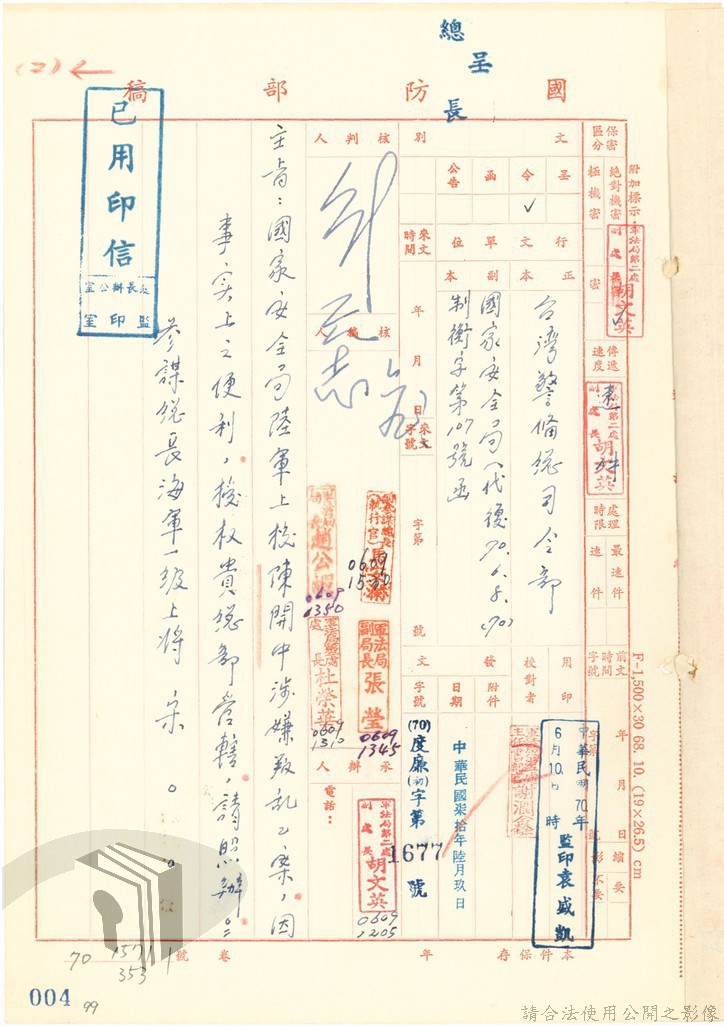 總長
呈
(2)←
國防部稿
保密區分
絕對機密
極機密
密
附加標示：
軍法局第二處
副處長
胡文英
傳遞速度
軍法局第二處
副處長
胡文英
處理時限
最速件
速件
前文
時間
字號
年月日
字第
號
F-1,500×30 68. 10. (19×26.5) cm
文別
呈
令
✓
函
公告
行文單位
正本
台灣警備總司令部
副本
國家安全局(代復70.6.8.(70)
制衡字第107號函
來文時間
年月日
來文字號
字第
號
用印
校對者
發文
附件
日期
中華民國柒拾年陸月玖日
字號
(70)度廉(初)字第1677號
中華民國70年
6月10日
時
監印袁盛凱
核判人
核稿人
執行官
0609
1530
趙公嘏
0609
1350
軍法局
副局長
張瑩
0609
1345
處長
杜榮英
0609
1310
承辦人
電話：
軍法局第二處
副處長
胡文英
0609
1205
主旨：國家安全局陸軍上校陳開中涉嫌叛亂乙案，因
事實上之便利，移权貴總部管轄，請照辦。
參謀總長海軍一級上將宋○○
已用印信
總長辦公室
監印室
本件保存
年
卷
號
70
1571
353
1
004
99
請合法使用公開之影像